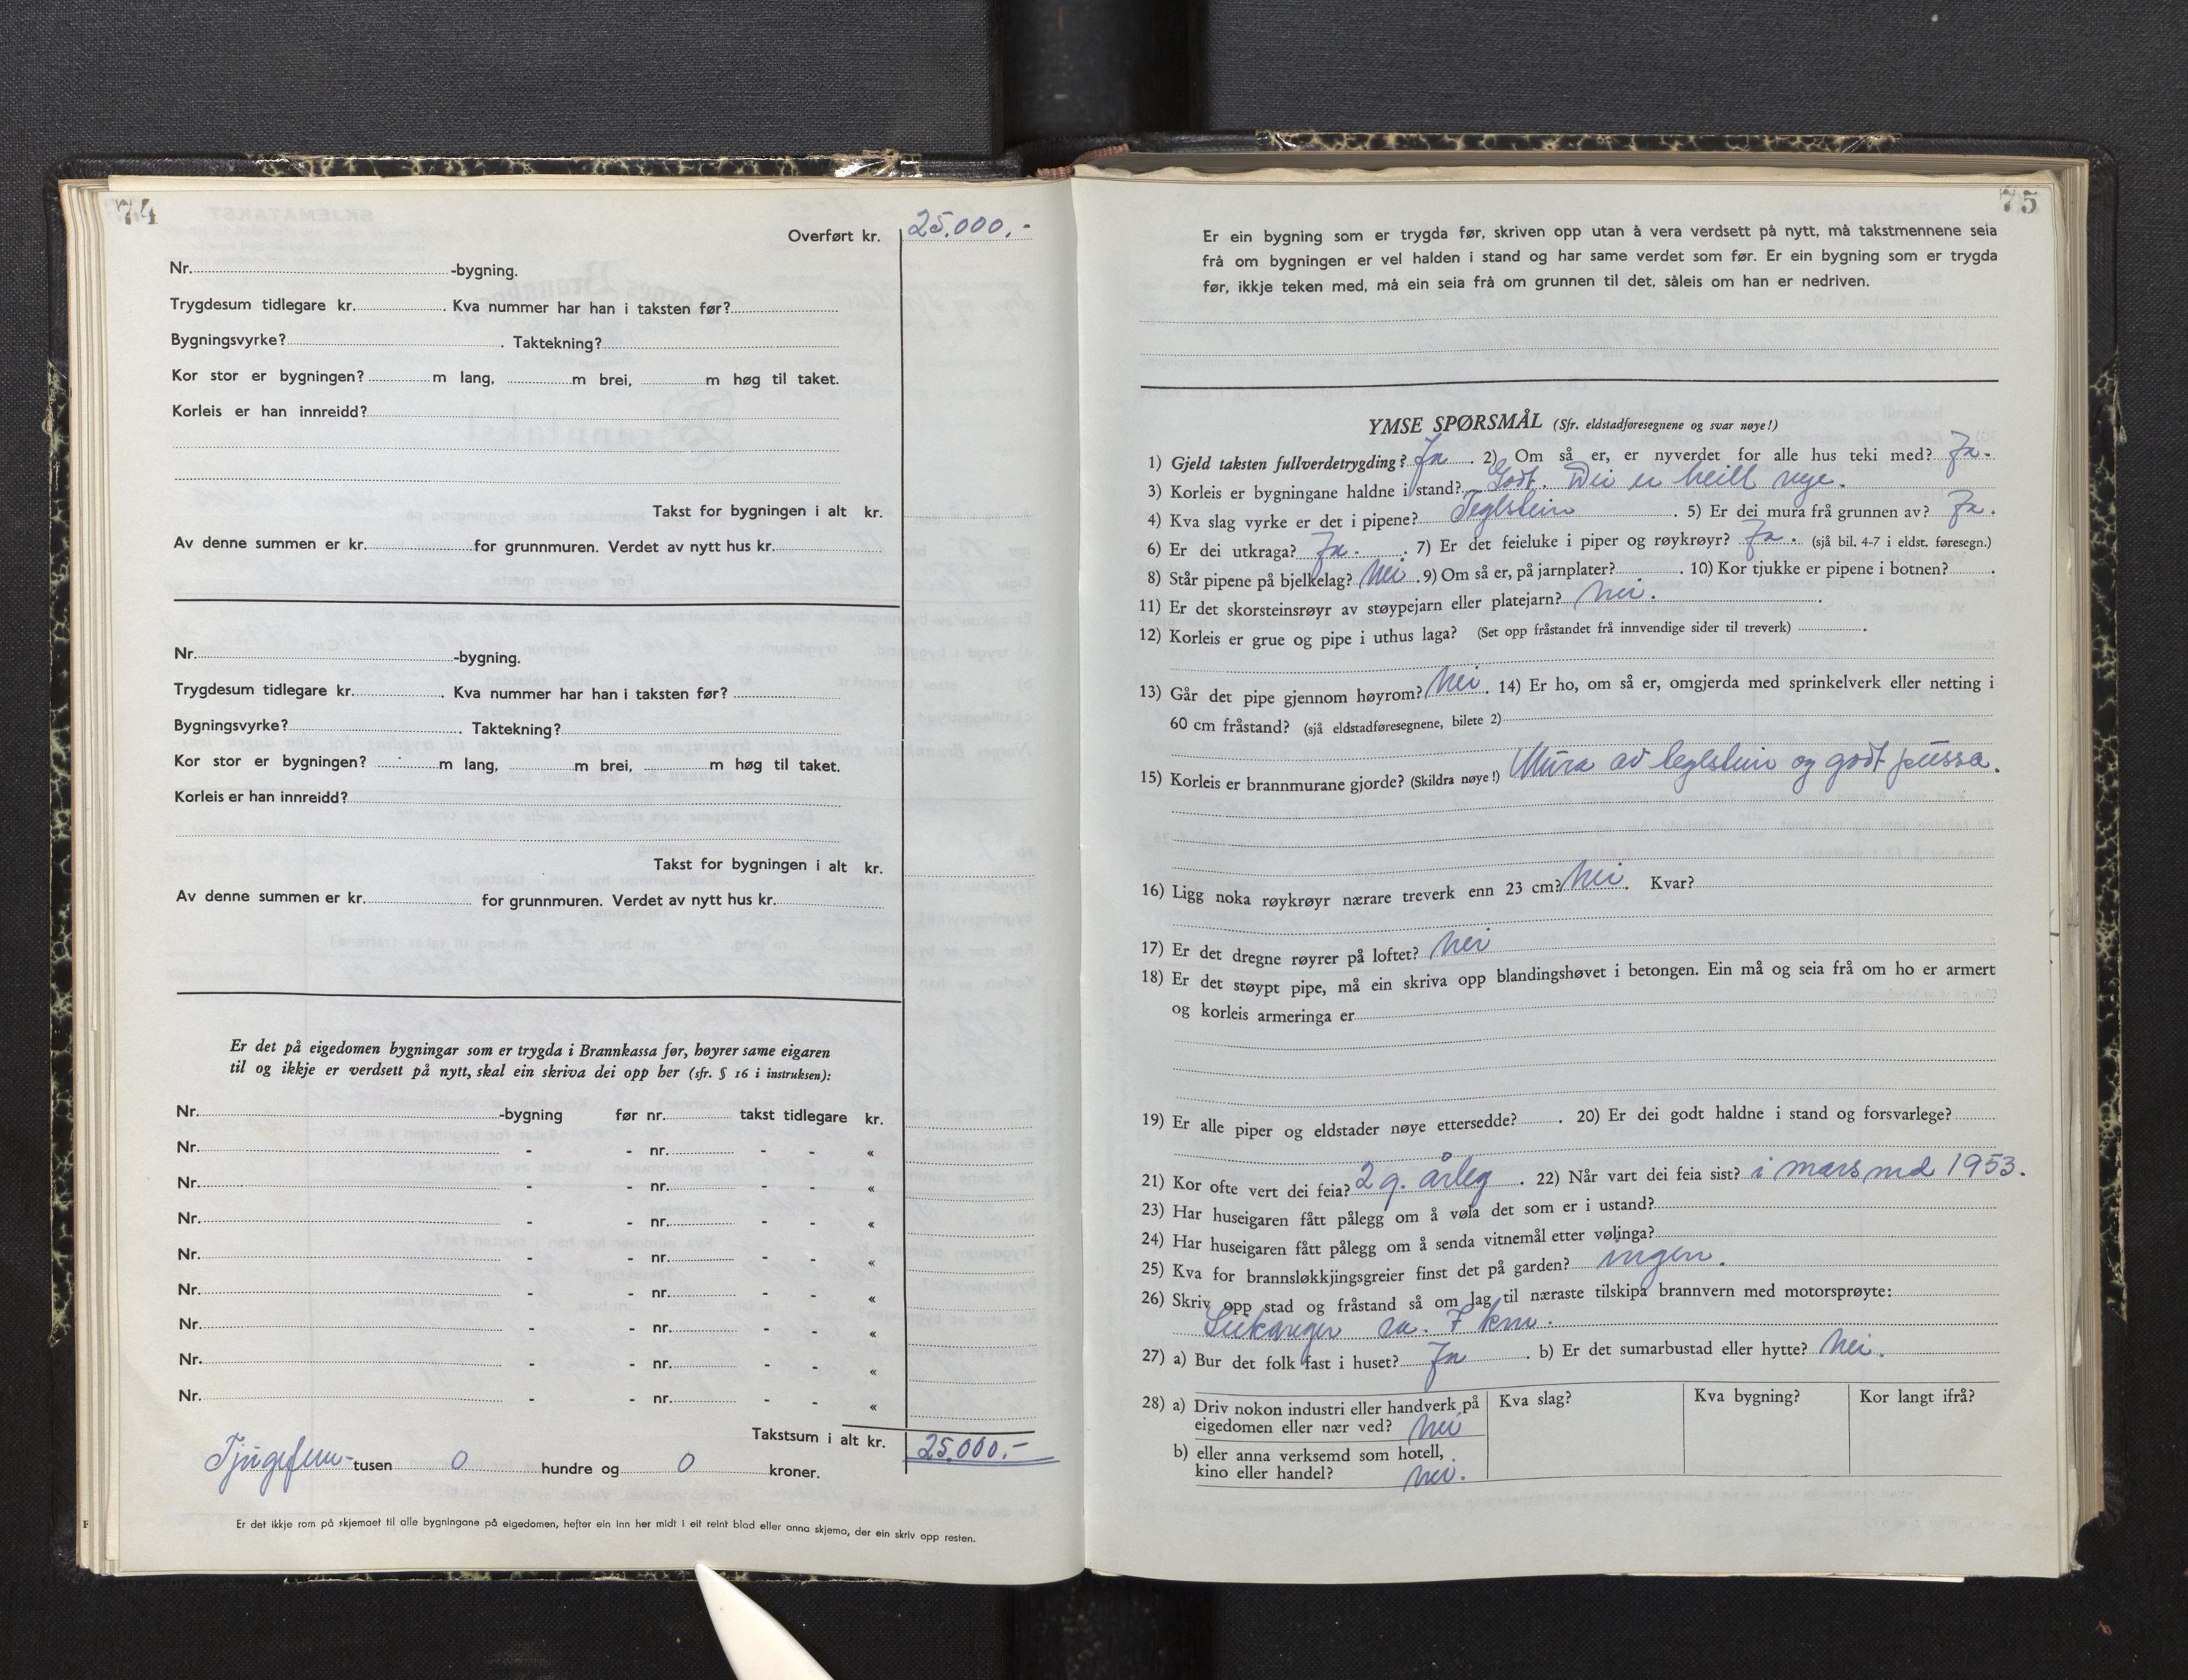 74
Overført kr. 25.000,-
Nr. -bygning.
Trygdesum tidlegare kr. . Kva nummer har han i taksten før?
Bygningsvyrke? . Taktekning?
Kor stor er bygningen? m lang, m brei, m høg til taket.
Korleis er han innreidd?
Takst for bygningen i alt kr.
Av denne summen er kr. for grunnmuren. Verdet av nytt hus kr.
Nr. -bygning.
Trygdesum tidlegare kr. . Kva nummer har han i taksten før?
Bygningsvyrke? . Taktekning?
Kor stor er bygningen? m lang, m brei, m høg til taket.
Korleis er han innreidd?
Takst for bygningen i alt kr.
Av denne summen er kr. for grunnmuren. Verdet av nytt hus kr.
Er det på eigedomen bygningar som er trygda i Brannkassa før, høyrer same eigaren
til og ikkje er verdsett på nytt, skal ein skriva dei opp her (sfr. § 16 i instruksen):
Nr. -bygning før nr. takst tidlegare kr.
Nr. - - nr. - - «
Nr. - - nr. - - «
Nr. - - nr. - - «
Nr. - - nr. - - «
Nr. - - nr. - - «
Nr. - - nr. - - «
Nr. - - nr. - - «
Nr. - - nr. - - «
Takstsum i alt kr. 25.000,-
Tjugefem- tusen 0 hundre og 0 kroner.
Er det ikkje rom på skjemaet til alle bygningane på eigedomen, hefter ein inn her midt i eit reint blad eller anna skjema, der ein skriv opp resten.
75
Er ein bygning som er trygda før, skriven opp utan å vera verdsett på nytt, må takstmennene seia
frå om bygningen er vel halden i stand og har same verdet som før. Er ein bygning som er trygda
før, ikkje teken med, må ein seia frå om grunnen til det, såleis om han er nedriven.
YMSE SPØRSMÅL (Sfr. eldstadføresegnene og svar nøye!)
1) Gjeld taksten fullverdetrygding? Ja . 2) Om så er, er nyverdet for alle hus teki med? Ja.
3) Korleis er bygningane haldne i stand? Godt. Dei er heilt nye.
4) Kva slag vyrke er det i pipene? Teglstein . 5) Er dei mura frå grunnen av? Ja.
6) Er dei utkraga? Ja. . 7) Er det feieluke i piper og røykrøyr? Ja. (sjå bil. 4-7 i eldst. føresegn.)
8) Står pipene på bjelkelag? Nei . 9) Om så er, på jarnplater? . 10) Kor tjukke er pipene i botnen? .
11) Er det skorsteinsrøyr av støypejarn eller platejarn? Nei. .
12) Korleis er grue og pipe i uthus laga? (Set opp fråstandet frå innvendige sider til treverk) .
13) Går det pipe gjennom høyrom? Nei . 14) Er ho, om så er, omgjerda med sprinkelverk eller netting i
60 cm fråstand? (sjå eldstadføresegnene, bilete 2)
15) Korleis er brannmurane gjorde? (Skildra nøye!) Mura av teglstein og godt pussa.
16) Ligg noka røykrøyr nærare treverk enn 23 cm? Nei . Kvar?
17) Er det dregne røyrer på loftet? Nei
18) Er det støypt pipe, må ein skriva opp blandingshøvet i betongen. Ein må og seia frå om ho er armert
og korleis armeringa er
19) Er alle piper og eldstader nøye ettersedde? . 20) Er dei godt haldne i stand og forsvarlege?
21) Kor ofte vert dei feia? 2 g. årleg . 22) Når vart dei feia sist? i mars md 1953.
23) Har huseigaren fått pålegg om å vøla det som er i ustand?
24) Har huseigaren fått pålegg om å senda vitnemål etter vølinga?
25) Kva for brannsløkkjingsgreier finst det på garden? ingen.
26) Skriv opp stad og fråstand så om lag til næraste tilskipa brannvern med motorsprøyte:
Leikanger ca. 7 km.
27) a) Bur det folk fast i huset? Ja . b) Er det sumarbustad eller hytte? Nei.
28) a) Driv nokon industri eller handverk på Kva slag? Kva bygning? Kor langt ifrå?
eigedomen eller nær ved? Nei
b) eller anna verksemd som hotell,
kino eller handel? Nei.